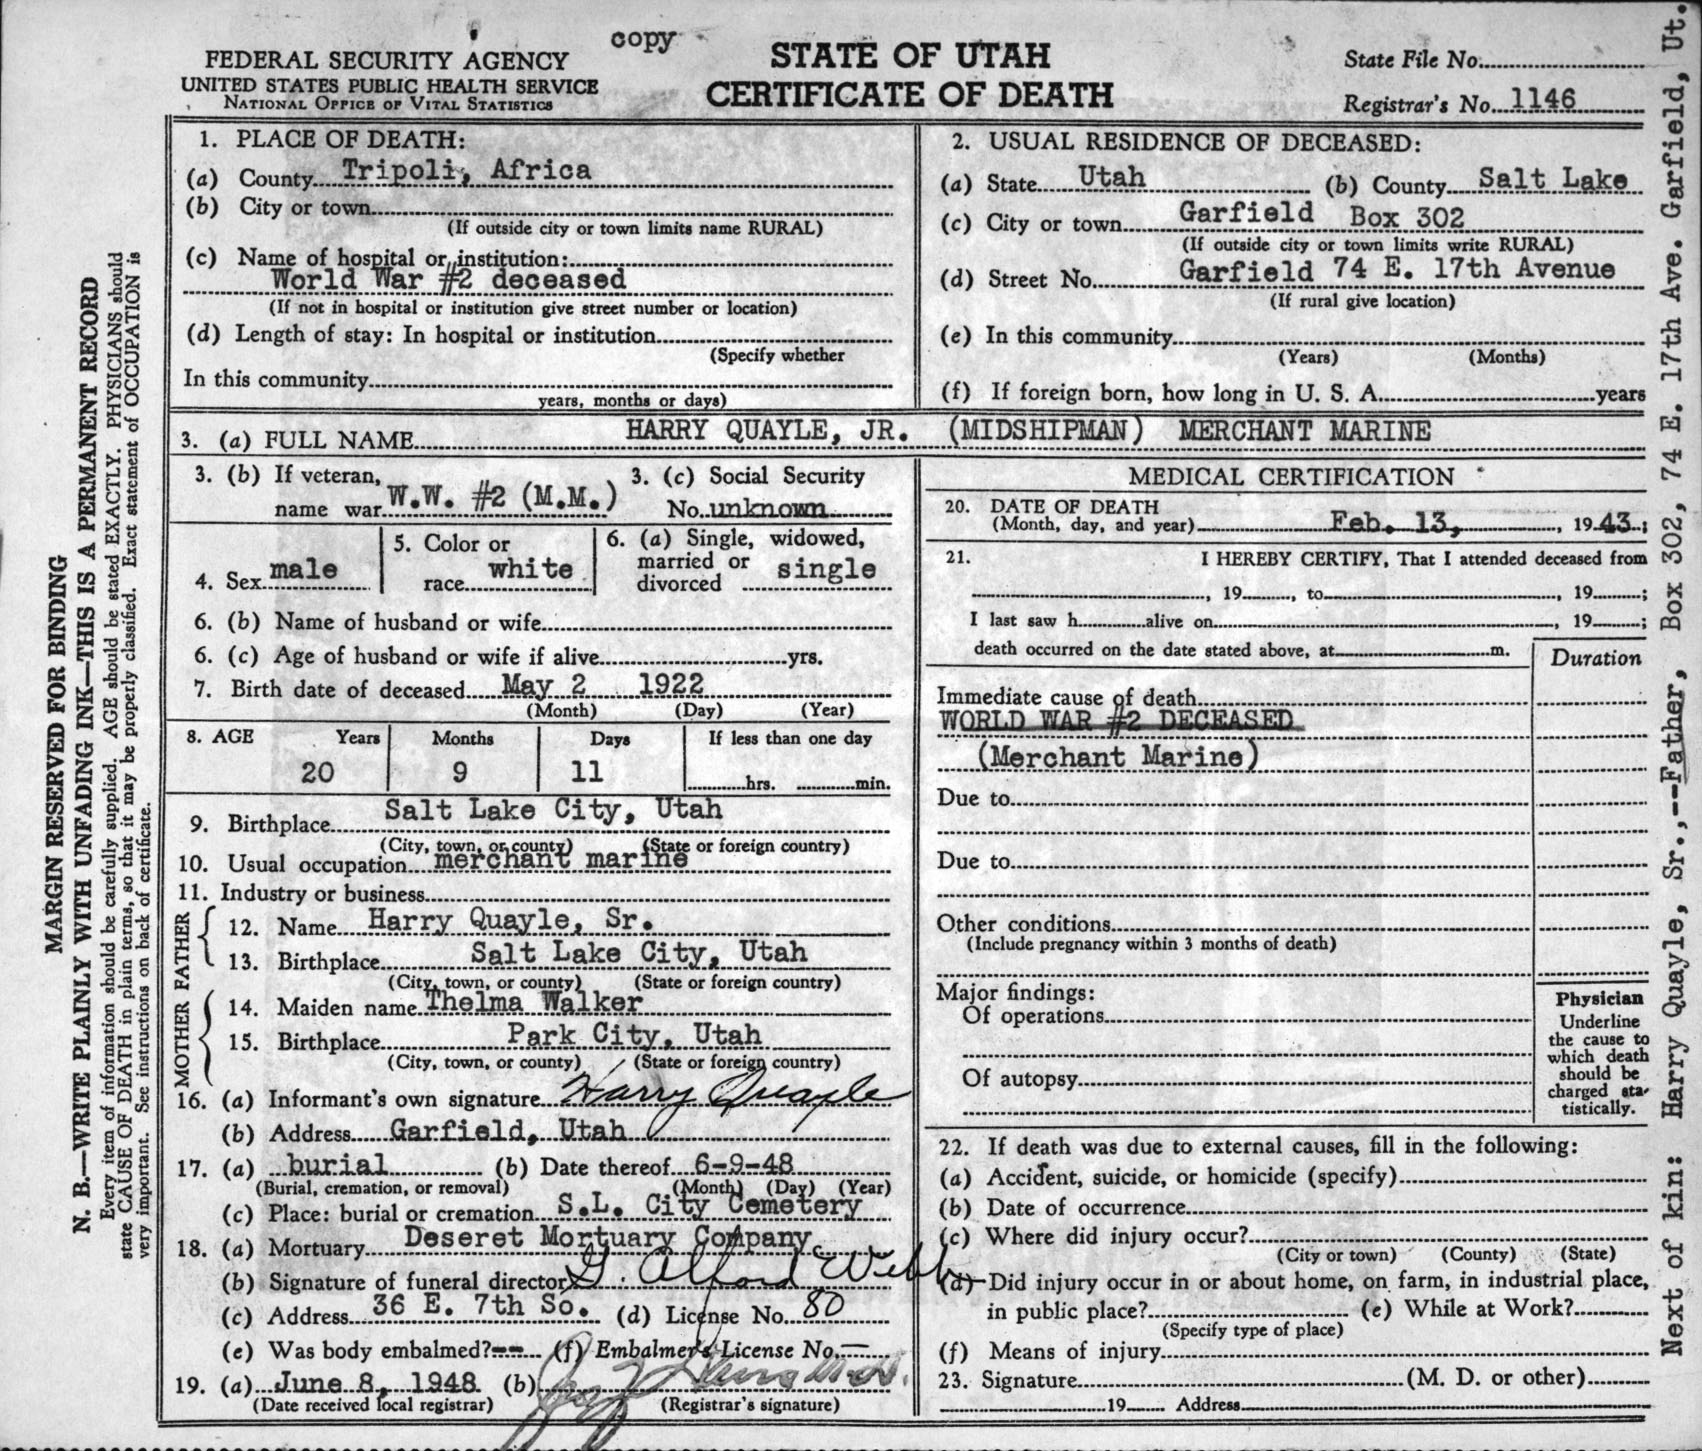 copy
FEDERAL SECURITY AGENCY
UNITED STATES PUBLIC HEALTH SERVICE
NATIONAL OFFICE OF VITAL STATISTICS
STATE OF UTAH
CERTIFICATE OF DEATH
State File No.
Registrar's No. 1146
1. PLACE OF DEATH:
(a) County Tripoli, Africa
(b) City or town
(If outside city or town limits name RURAL)
(c) Name of hospital or institution:
World War #2 deceased
(If not in hospital or institution give street number or location)
(d) Length of stay: In hospital or institution
(Specify whether
In this community
years, months or days)
2. USUAL RESIDENCE OF DECEASED:
(a) State Utah (b) County Salt Lake
(c) City or town Garfield Box 302
(If outside city or town limits write RURAL)
(d) Street No. Garfield 74 E. 17th Avenue
(If rural give location)
(e) In this community
(Years) (Months)
(f) If foreign born, how long in U. S. A. years
3. (a) FULL NAME HARRY QUAYLE, JR. (MIDSHIPMAN) MERCHANT MARINE
3. (b) If veteran,
name war W.W. #2 (M.M.)
3. (c) Social Security
No. unknown
4. Sex male
5. Color or
race white
6. (a) Single, widowed,
married or
divorced single
6. (b) Name of husband or wife
6. (c) Age of husband or wife if alive yrs.
7. Birth date of deceased May 2 1922
(Month) (Day) (Year)
8. AGE Years Months Days If less than one day
20 9 11 hrs. min.
9. Birthplace Salt Lake City, Utah
(City, town, or county) (State or foreign country)
10. Usual occupation merchant marine
11. Industry or business
FATHER
12. Name Harry Quayle, Sr.
13. Birthplace Salt Lake City, Utah
(City, town, or county) (State or foreign country)
MOTHER
14. Maiden name Thelma Walker
15. Birthplace Park City, Utah
(City, town, or county) (State or foreign country)
16. (a) Informant's own signature Harry Quayle
(b) Address Garfield, Utah
17. (a) burial (b) Date thereof 6-9-48
(Burial, cremation, or removal) (Month) (Day) (Year)
(c) Place: burial or cremation S.L. City Cemetery
18. (a) Mortuary Deseret Mortuary Company
(b) Signature of funeral director G. Alford Webb
(c) Address 36 E. 7th So. (d) License No. 80
(e) Was body embalmed? -- (f) Embalmer's License No. —
19. (a) June 8, 1948 (b)
(Date received local registrar) (Registrar's signature)
MEDICAL CERTIFICATION
20. DATE OF DEATH
(Month, day, and year) Feb. 13, , 1943;
21. I HEREBY CERTIFY, That I attended deceased from
, 19 , to , 19 ;
I last saw h alive on , 19 ;
death occurred on the date stated above, at m.
Duration
Immediate cause of death
WORLD WAR #2 DECEASED
(Merchant Marine)
Due to
Due to
Other conditions
(Include pregnancy within 3 months of death)
Major findings:
Of operations
Of autopsy
Physician
Underline
the cause to
which death
should be
charged sta-
tistically.
22. If death was due to external causes, fill in the following:
(a) Accident, suicide, or homicide (specify)
(b) Date of occurrence
(c) Where did injury occur?
(City or town) (County) (State)
(d) Did injury occur in or about home, on farm, in industrial place,
in public place? (e) While at Work?
(Specify type of place)
(f) Means of injury
23. Signature (M. D. or other)
19 Address
MARGIN RESERVED FOR BINDING
N. B.—WRITE PLAINLY WITH UNFADING INK—THIS IS A PERMANENT RECORD
Every item of information should be carefully supplied. AGE should be stated EXACTLY. PHYSICIANS should
state CAUSE OF DEATH in plain terms, so that it may be properly classified. Exact statement of OCCUPATION is
very important. See instructions on back of certificate.
Next of kin: Harry Quayle, Sr.,--Father, Box 302, 74 E. 17th Ave. Garfield, Ut.